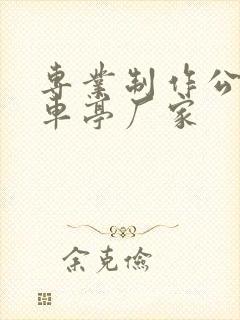 專業制作公
車亭厂家
余克儉